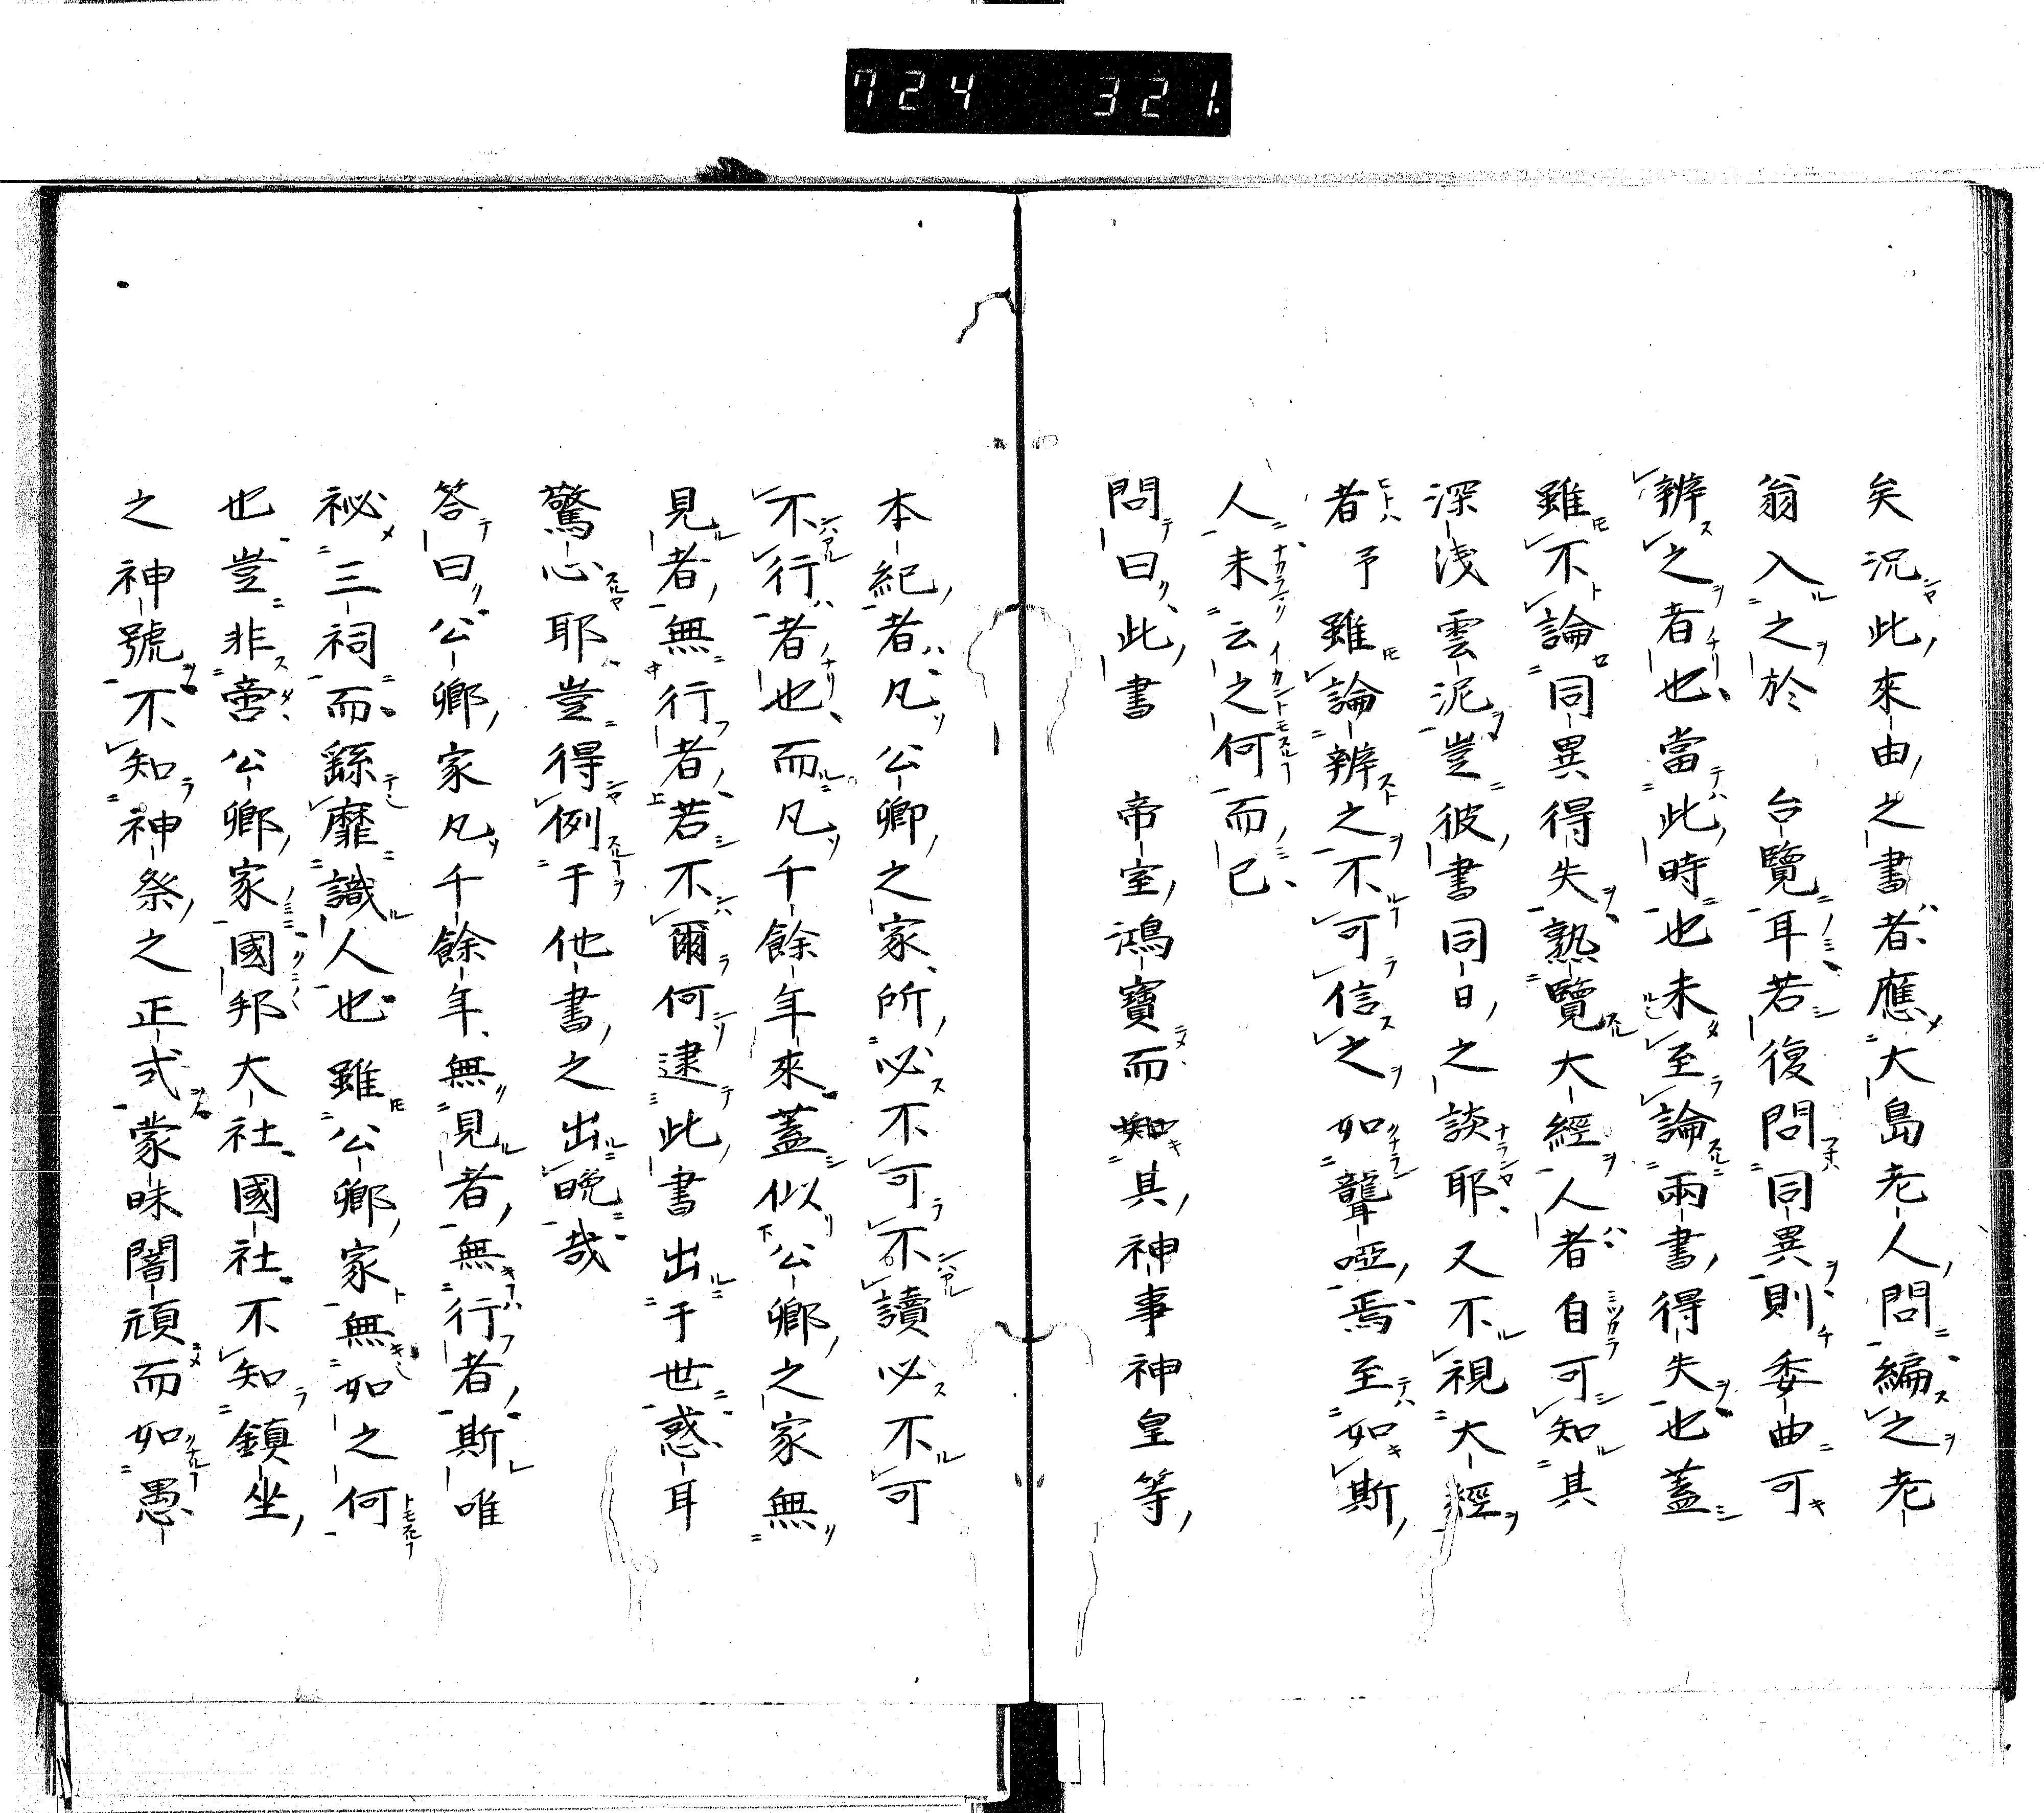 724 321.
矣況此來由之書者應大島老人問編之老
翁入之於 台覽耳若復問同異則委曲可
辨之者也當此時也未至論兩書得失也蓋
雖不論同異得失熟覽大經人者自可知其
深淺雲泥豈彼書同日之談耶又不視大經
者予雖論辨之不可信之如聾啞焉至如斯
人未云之何而已
問曰此書 帝室鴻寶而如其神事神皇等
本紀者凡公卿之家所必不可不讀必不可
不行者也而凡千餘年來蓋似公卿之家無
見者無行者若不爾何逮此書出于世惑耳
驚心耶豈得例于他書之出晚哉
答曰公卿家凡千餘年無見者無行者斯唯
祕三祠而繇靡識人也雖公卿家無如之何
也豈非啻公卿家國邦大社國社不知鎮坐
之神號不知神祭之正式蒙昧闇頑而如愚